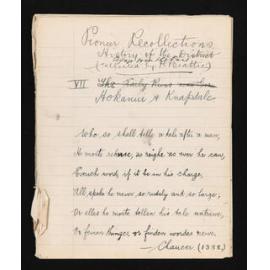 Pioneer Recollections
History of the District
(collected by H. Beattie)
VII The Early Runs
Hokanui & Knapdale
Who so shall telle a tale after a man,
He moste reherse, as neighe as ever he can,
Everich word, if it be in his charge,
All speke he never so rudely and so large;
Or elles he moste tellen his tale untrewe,
Or feinen thinges or finden wordes newe.
— Chaucer (1388)